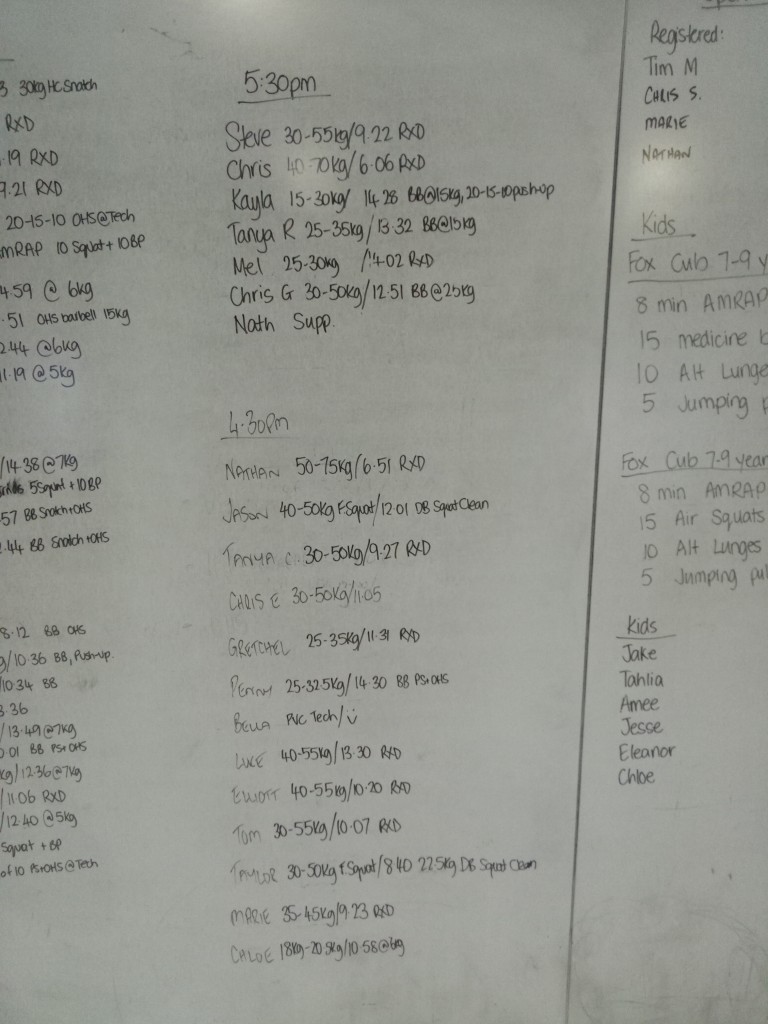 3 30kg HC Snatch
RXD
.19 RXD
7.21 RXD
20-15-10 OHS@Tech
AMRAP 10 Squat + 10BP
4.59 @ 6kg
.51 OHS barbell 15kg
2.44 @6kg
11.19 @5kg
/14.38@7kg
5 Squat + 10BP
.57 BB Snatch+OHS
2.44 BB Snatch+OHS
8.12 BB OHS
/10.36 BB, Pushup.
/10.34 BB
3.36
/13.49@7kg
0.01 BB PS+OHS
kg/12.36@7kg
/11.06 RXD
/12.40 @5kg
Squat + BP
of 10 PS+OHS@Tech
5:30pm
Steve 30-55kg/9.22 RXD
Chris 40-70kg/6.06 RXD
Kayla 15-30kg/ 14.28 BB@15kg, 20-15-10 push-up
Tanya R 25-35kg/13.32 BB@15kg
Mel 25-30kg /14.02 RXD
Chris G 30-50kg/12.51 BB@25kg
Nath Supp.
4.30pm
NATHAN 50-75kg/6.51 RXD
JASON 40-50kg FSquat/12.01 DB Squat Clean
TANYA C. 30-50kg/9.27 RXD
CHRIS E 30-50kg/11.05
GRETCHEL 25-35kg/11.31 RXD
PENNY 25-32.5kg/14.30 BB PS+OHS
BELLA PVC Tech/
LUKE 40-55kg/13.30 RXD
ELLIOTT 40-55kg/10.20 RXD
Tom 30-55kg/10.07 RXD
TAYLOR 30-50kg F.Squat/8.40 22.5kg DB Squat Clean
MARIE 35-45kg/9.23 RXD
CHLOE 18kg-20.5kg/10.58@6kg
Registered:
Tim M
CHRIS S.
MARIE
NATHAN
Kids
Fox Cub 7-9 y
8 min AMRAP
15 medicine b
10 Alt Lunge
5 Jumping p
Fox Cub 7-9 year
8 min AMRAP
15 Air Squats
10 Alt Lunges
5 Jumping pul
Kids
Jake
Tahlia
Amee
Jesse
Eleanor
Chloe